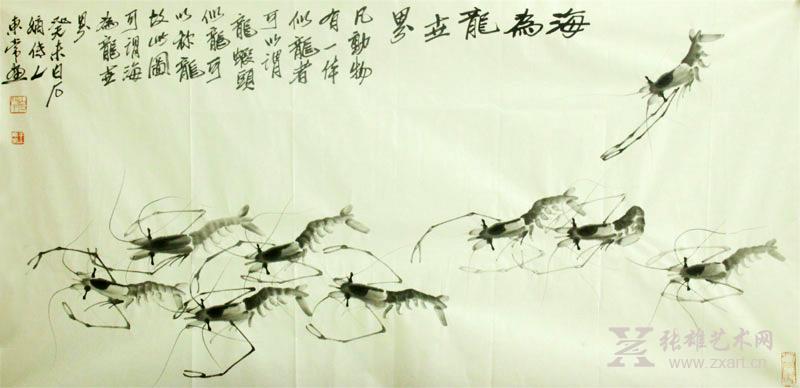 海為龍世界
凡動物
有一体
似龍者
可以謂
龍蝦頭
似龍可
以称龍
故此圖
可謂海
為龍世
界
癸未白石
嫡传人
東常画
张雄艺术网
www.zxart.cn